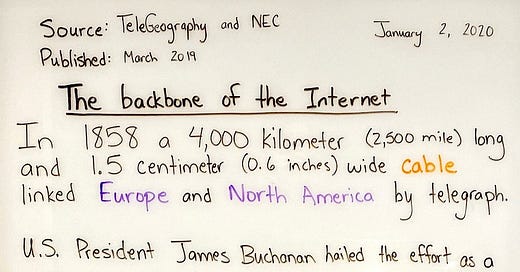 Source: TeleGeography and NEC
January 2, 2020
Published: March 2019
The backbone of the Internet
In 1858 a 4,000 kilometer (2,500 mile) long
and 1.5 centimeter (0.6 inches) wide cable
linked Europe and North America by telegraph.
U.S. President James Buchanan hailed the effort as a